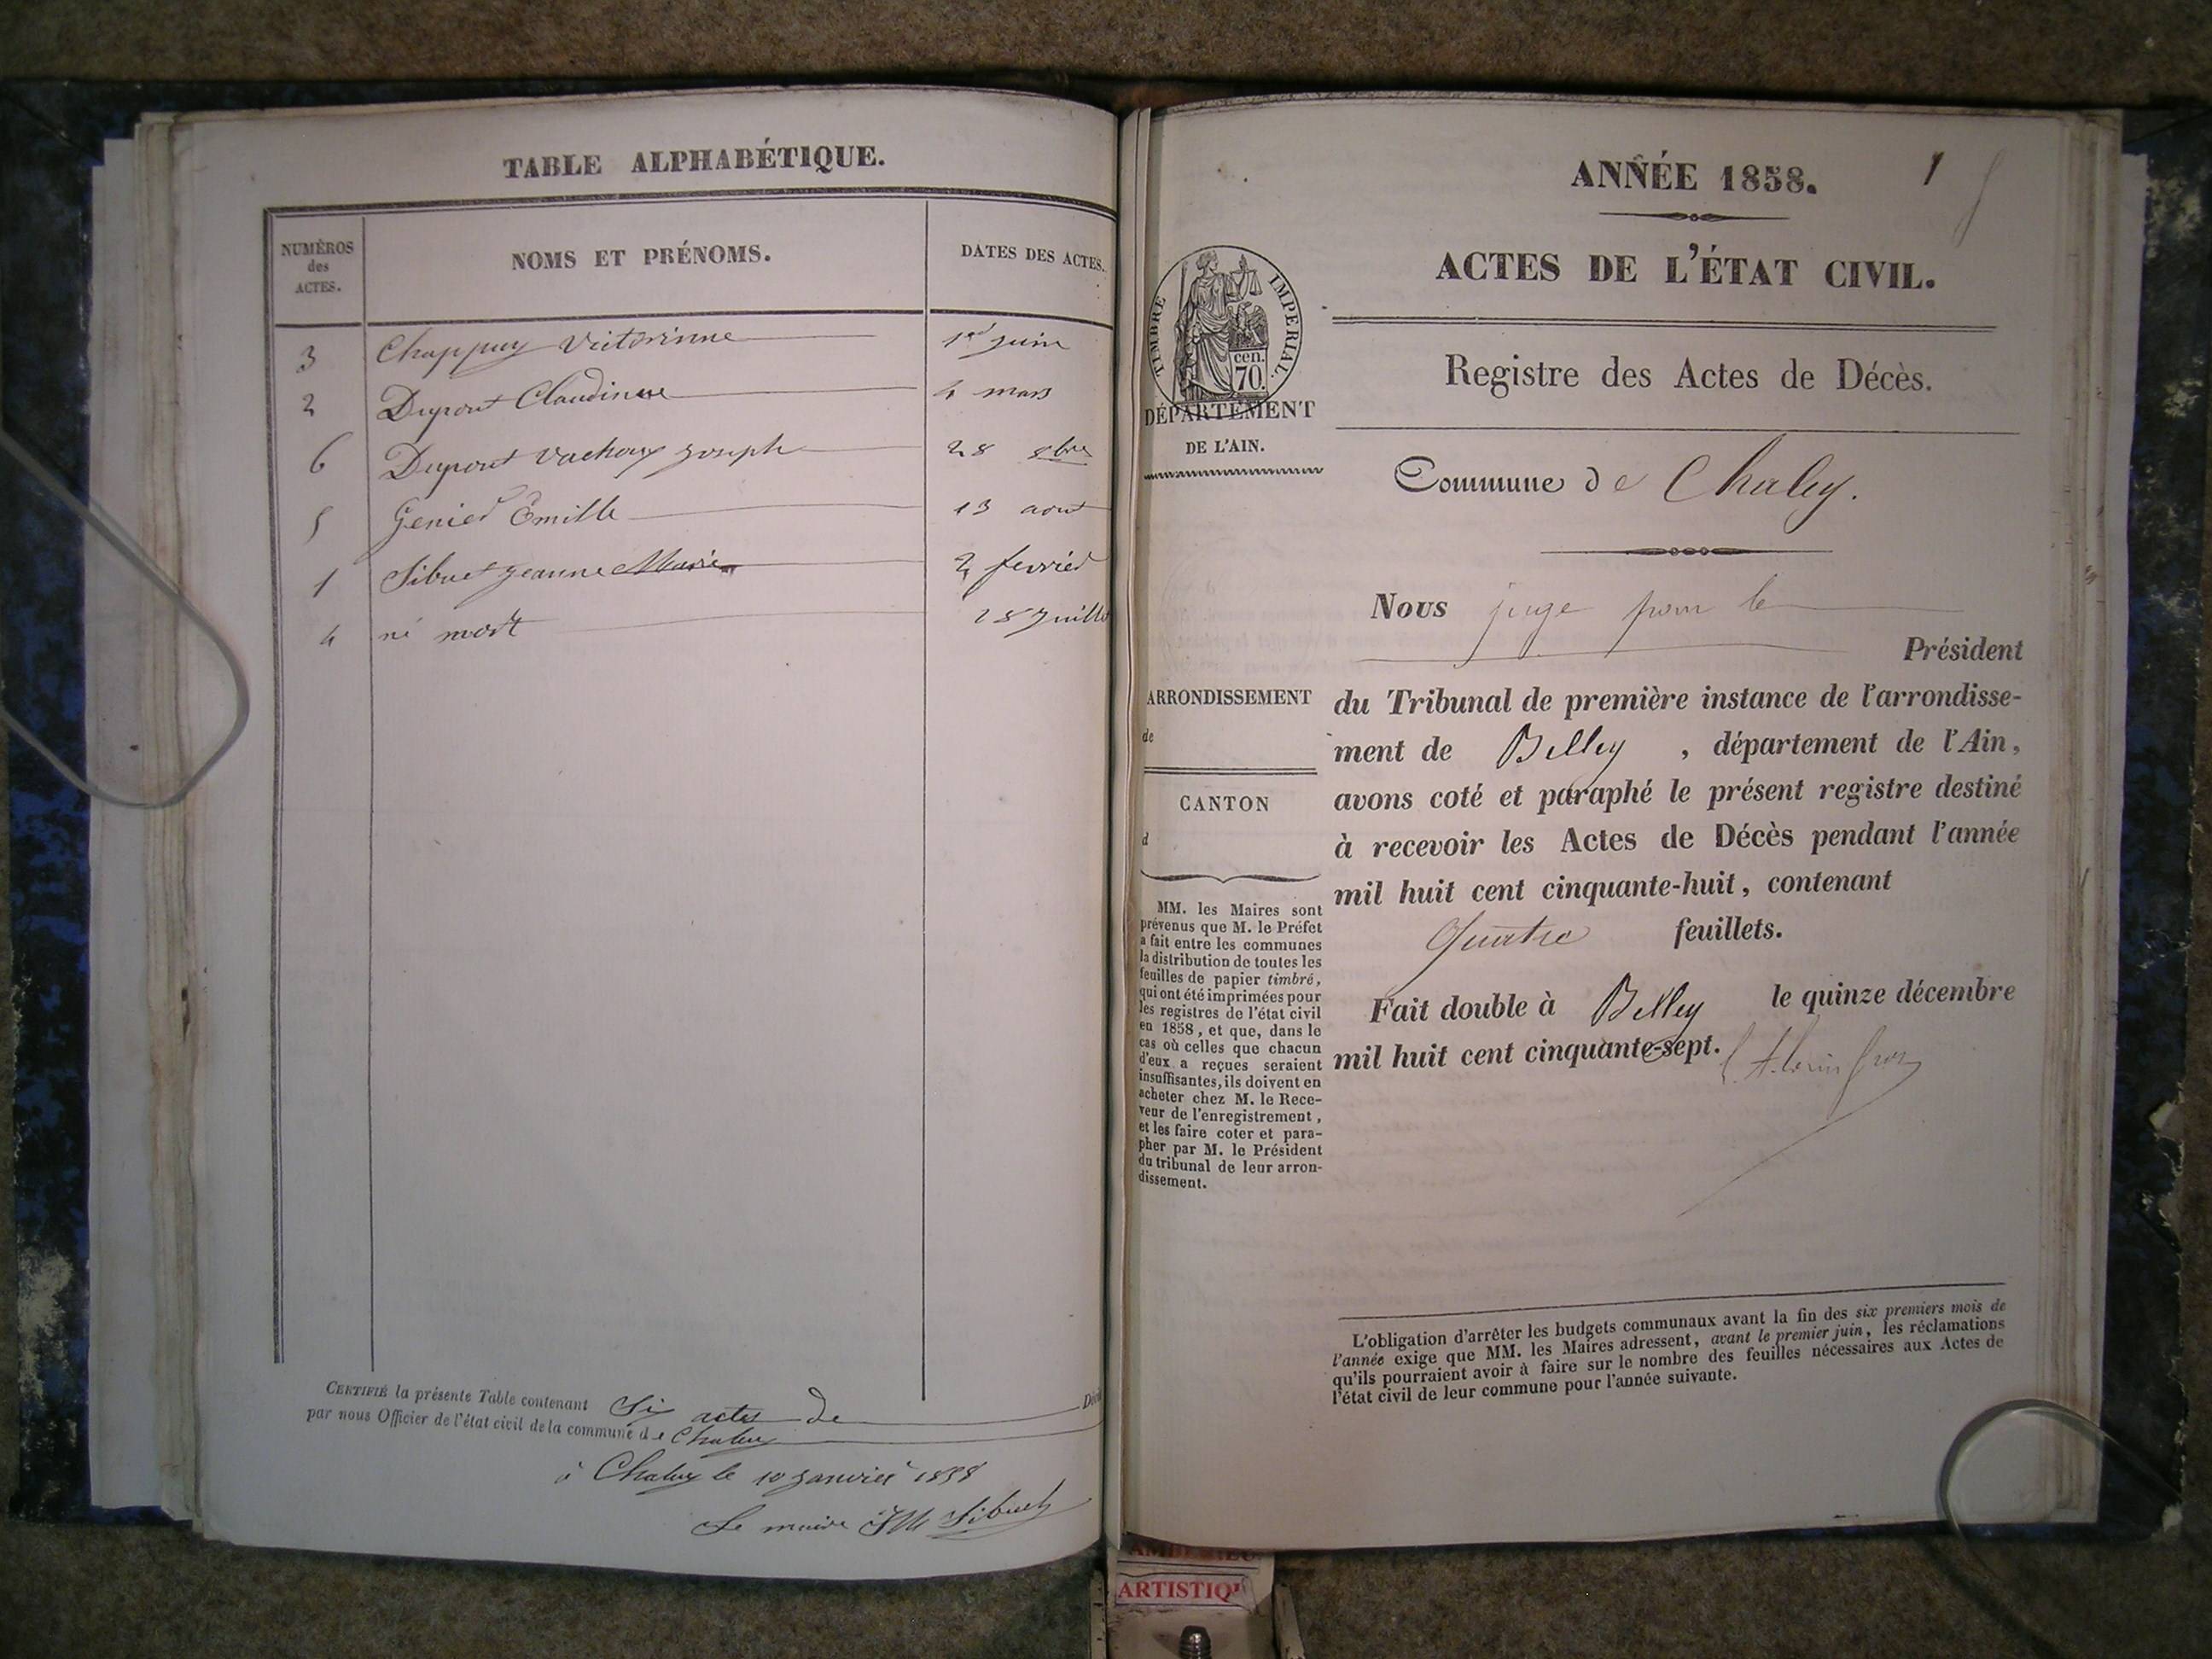 TABLE ALPHABÉTIQUE.
NUMÉROS
des
ACTES.
NOMS ET PRÉNOMS.
DATES DES ACTES.
3 Chappuy Victorinne 1er juin
2 Dupont Claudine 4 mars
6 Dupont Vachoux Joseph 28 8bre
5 Genier Emille 13 aout
1 Sibuet Jeanne Marie 2 fevrier
4 né mort 28 Juillet
CERTIFIÉ la présente Table contenant Six actes de
par nous Officier de l'état civil de la commune de Chaley
à Chaley le 10 janvier 1858
Le maire JM Sibuet
ANNÉE 1858.
1
ACTES DE L'ÉTAT CIVIL.
Registre des Actes de Décès.
TIMBRE IMPERIAL.
70 cen.
DÉPARTEMENT
DE L'AIN.
Commune de Chaley.
Nous juge pour le
Président
du Tribunal de première instance de l'arrondisse-
ment de Belley, département de l'Ain,
avons coté et paraphé le présent registre destiné
à recevoir les Actes de Décès pendant l'année
mil huit cent cinquante-huit, contenant
Quatre feuillets.
Fait double à Belley le quinze décembre
mil huit cent cinquante-sept.
ARRONDISSEMENT
de
CANTON
d
MM. les Maires sont
prévenus que M. le Préfet
a fait entre les communes
la distribution de toutes les
feuilles de papier timbré,
qui ont été imprimées pour
les registres de l'état civil
en 1858, et que, dans le
cas où celles que chacun
d'eux a reçues seraient
insuffisantes, ils doivent en
acheter chez M. le Rece-
veur de l'enregistrement,
et les faire coter et para-
pher par M. le Président
du tribunal de leur arron-
dissement.
L'obligation d'arrêter les budgets communaux avant la fin des six premiers mois de
l'année exige que MM. les Maires adressent, avant le premier juin, les réclamations
qu'ils pourraient avoir à faire sur le nombre des feuilles nécessaires aux Actes de
l'état civil de leur commune pour l'année suivante.
ARTISTIQ